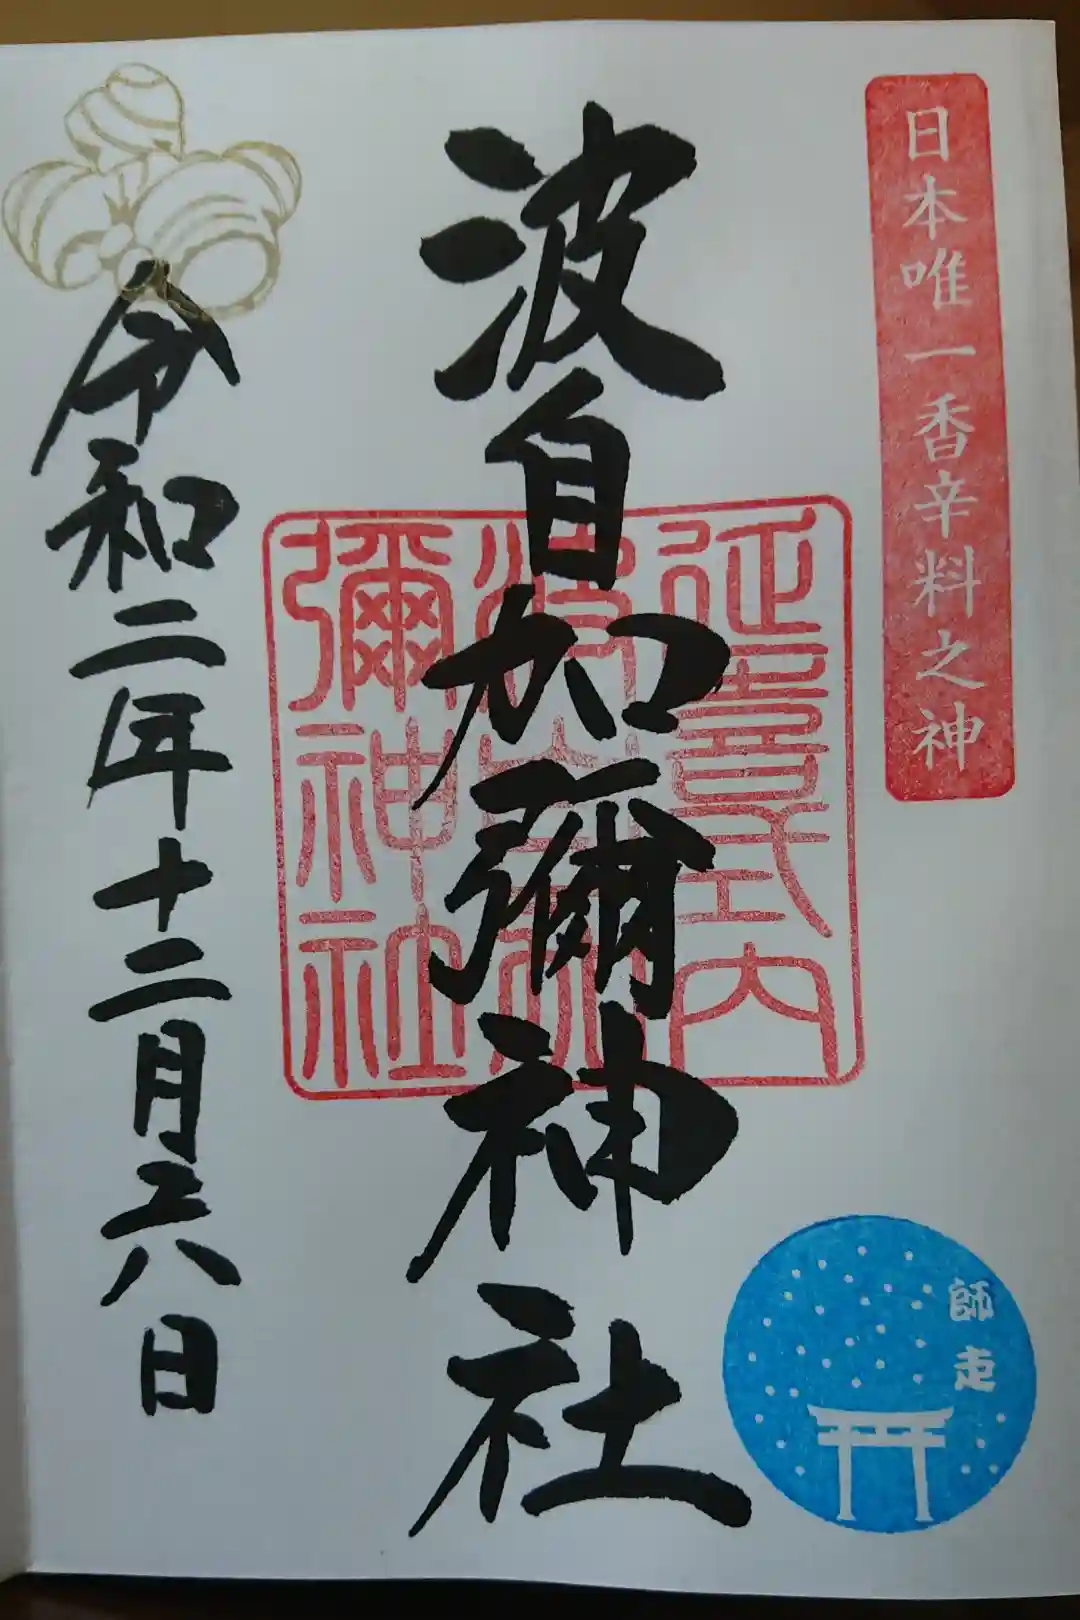 日本唯一香辛料之神
波自加彌神社
延喜式内
波自加
彌神社
令和二年十二月六日
師走